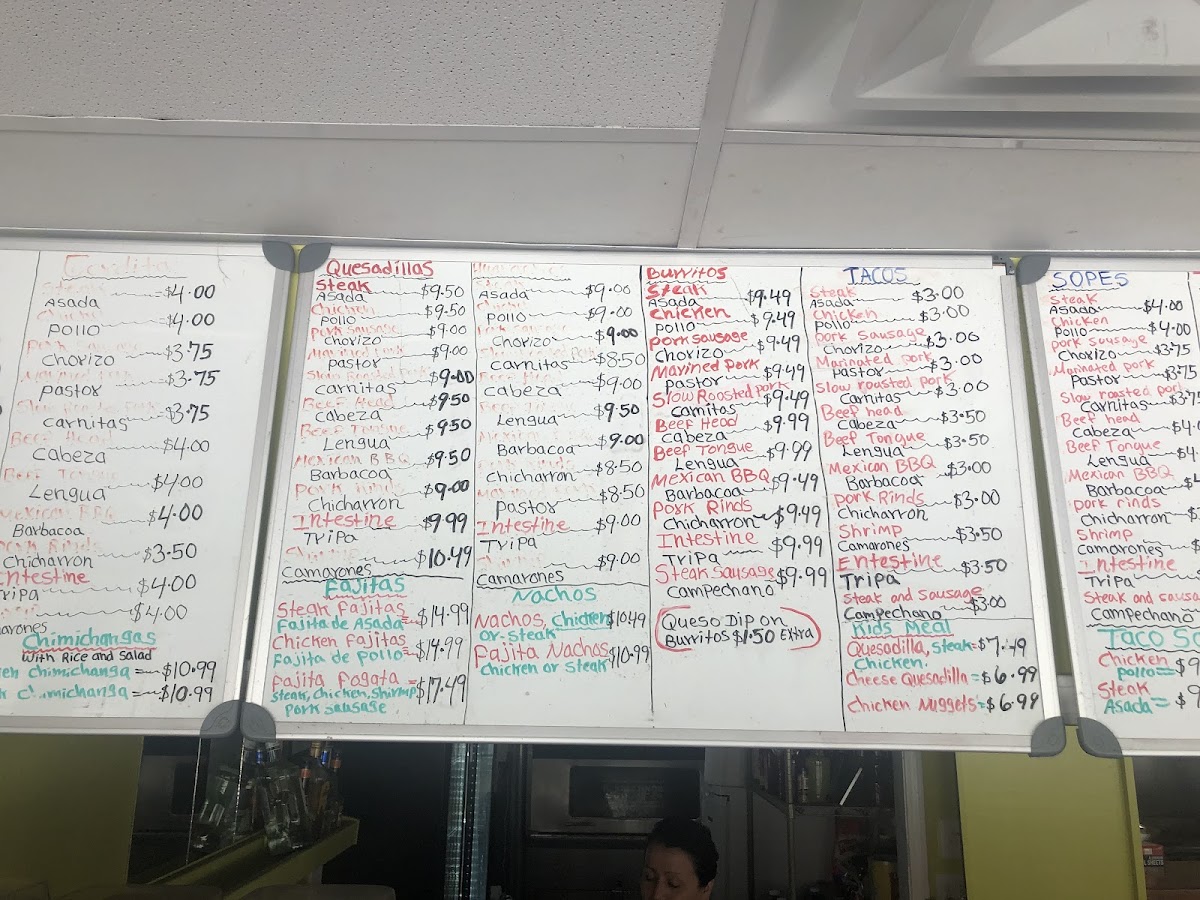 Gorditas
Steak
Asada $4.00
Chicken
Pollo $4.00
Pork Sausage
Chorizo $3.75
Marined Pork
Pastor $3.75
Slow Roasted Pork
Carnitas $3.75
Beef Head
Cabeza $4.00
Beef Tongue
Lengua $4.00
Mexican BBQ
Barbacoa $4.00
Pork Rinds
Chicharron $3.50
Intestine
Tripa $4.00
$4.00
Chimichangas
With Rice and Salad
chimichanga = $10.99
chimichanga = $10.99
Quesadillas
Steak
Asada $9.50
Chicken
Pollo $9.50
Pork Sausage
Chorizo $9.00
Marined Pork
Pastor $9.00
Slow Roasted Pork
Carnitas $9.00
Beef Head
Cabeza $9.50
Beef Tongue
Lengua $9.50
Mexican BBQ
Barbacoa $9.50
Pork Rinds
Chicharron $9.00
Intestine
Tripa $9.99
Camarones $10.49
Fajitas
Steak Fajitas
Fajita de Asada = $14.99
Chicken Fajitas
Fajita de Pollo = $14.99
Fajita Fogata
Steak, Chicken, Shrimp = $17.49
Pork Sausage
Asada $9.00
Pollo $9.00
Chorizo $9.00
Carnitas $8.50
Cabeza $9.00
Lengua $9.50
Barbacoa $9.00
Chicharron $8.50
Pastor $8.50
Intestine
Tripa $9.00
Camarones $9.00
Nachos
Nachos, Chicken $10.49
or steak
Fajita Nachos $10.99
Chicken or Steak
Burritos
Steak
Asada $9.49
Chicken
Pollo $9.49
Pork sausage
Chorizo $9.49
Marined Pork
Pastor $9.49
Slow Roosted Pork
Carnitas $9.49
Beef Head
Cabeza $9.99
Beef Tongue
Lengua $9.99
Mexican BBQ
Barbacoa $9.49
Pork Rinds
Chicharron $9.49
Intestine
Tripa $9.99
Steak Sausage $9.99
Campechano
Queso Dip on
Burritos $1.50 Extra
TACOS
Steak
Asada $3.00
Chicken
Pollo $3.00
Pork Sausage
Chorizo $3.00
Marinated Pork
Pastor $3.00
Slow roasted pork
Carnitas $3.00
Beef head
Cabeza $3.50
Beef Tongue
Lengua $3.50
Mexican BBQ
Barbacoa $3.00
Pork Rinds
Chicharron $3.00
Shrimp
Camarones $3.50
Entestine
Tripa $3.50
Steak and sausage
Campechano $3.00
Kids Meal
Quesadilla, Steak = $7.49
Chicken.
Cheese Quesadilla = $6.99
Chicken Nuggets = $6.99
SOPES
Steak
Asada $4.00
Chicken
Pollo $4.00
Pork Sausage
Chorizo $3.75
Marinated pork
Pastor $3.75
Slow roasted pork
Carnitas $3.75
Beef head
Cabeza
Beef Tongue
Lengua
Mexican BBQ
Barbacoa
Pork rinds
Chicharron
Shrimp
Camarones
Intestine
Tripa
Steak and
Campechano
Taco
Chicken
Pollo =
Steak
Asada =